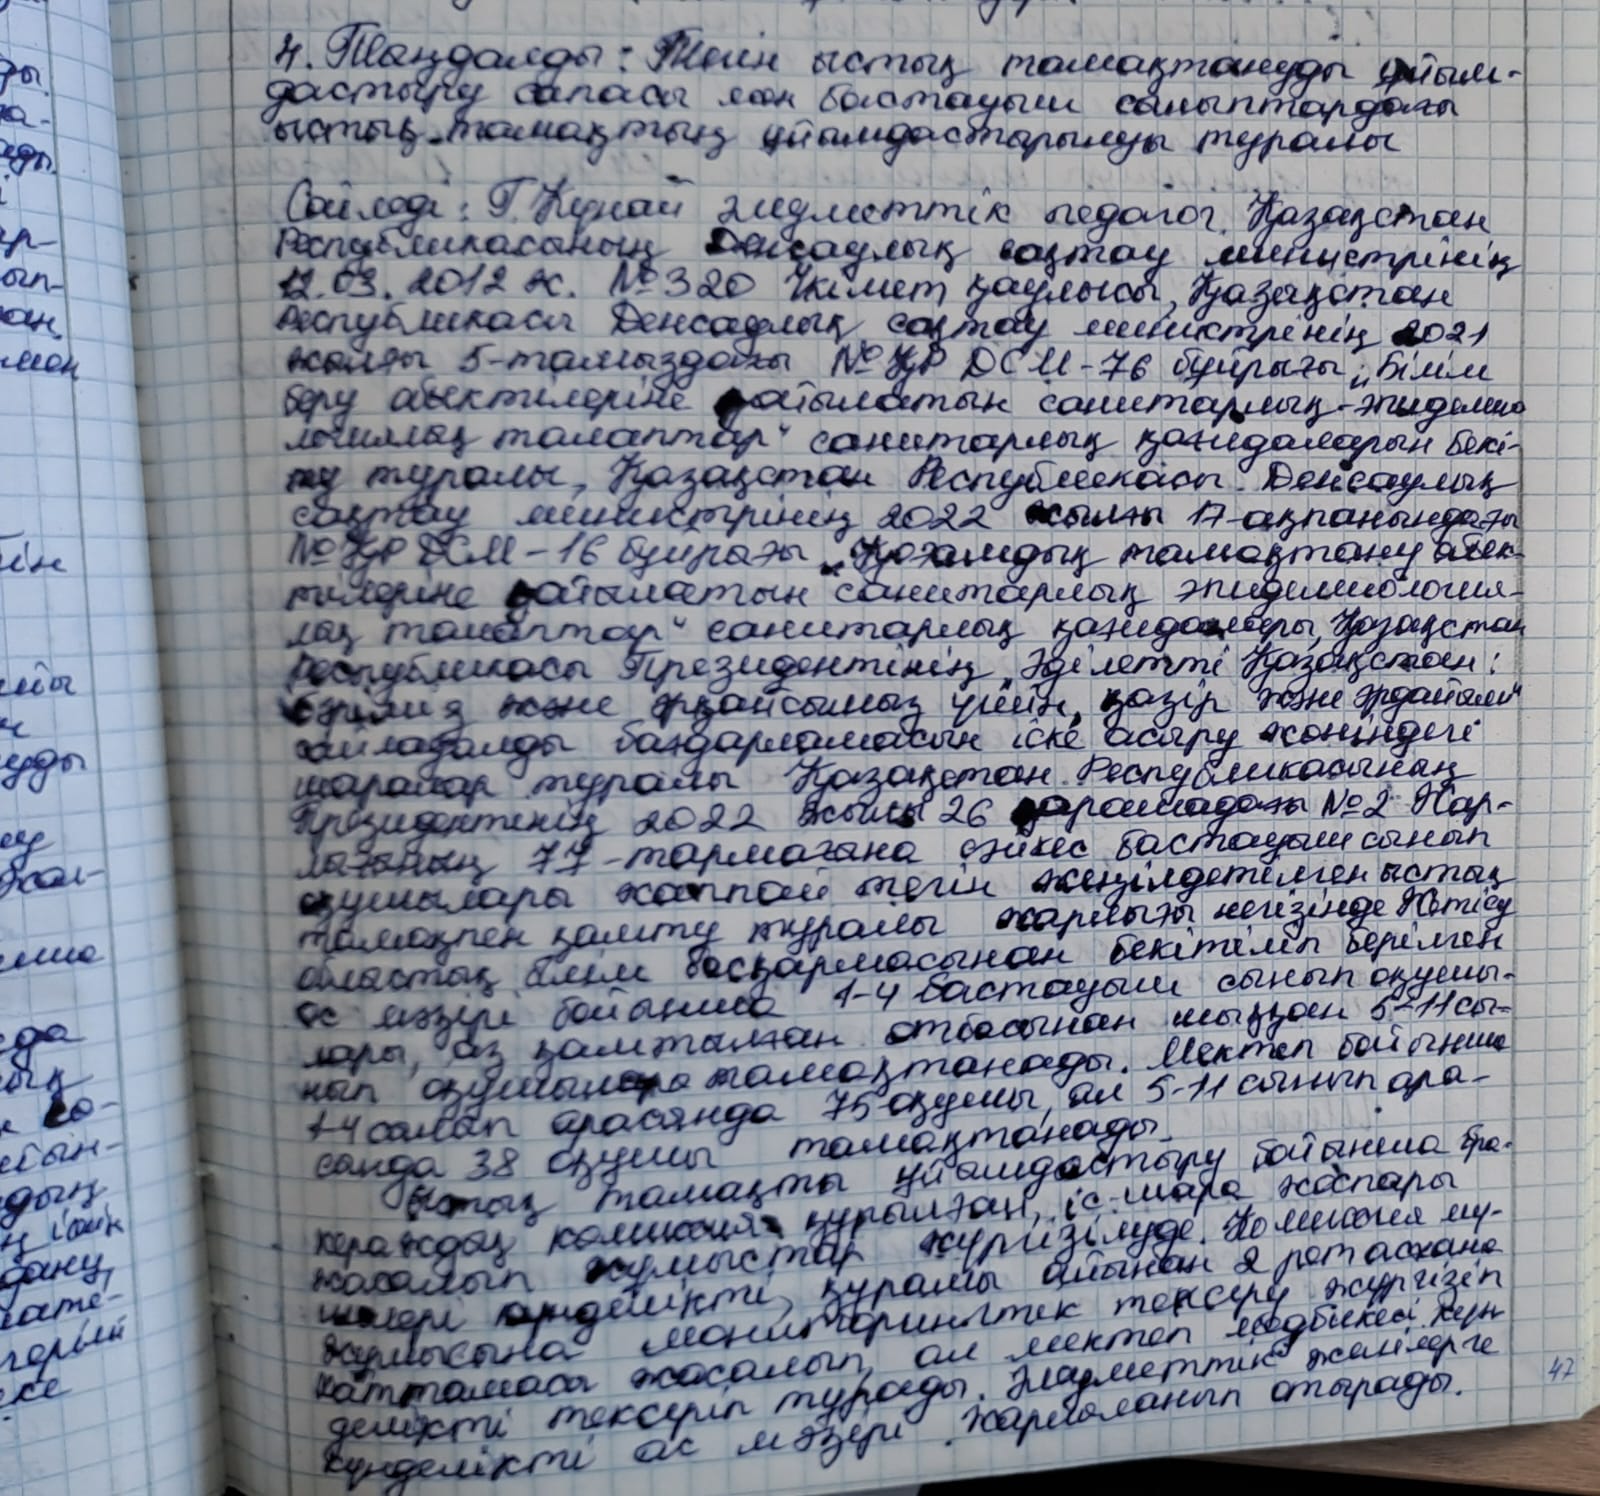 4. Тыңдалды: Тегін ыстық тамақтануды ұйым-
дастыру сапасы мен бастауыш сыныптардағы
ыстық тамақтың ұйымдастырылуы туралы
Сөйледі: Г. Құнай әлеуметтік педагог. Қазақстан
Республикасының Денсаулық сақтау министрінің
12.03.2012 ж. №320 Үкімет қаулысы, Қазақстан
Республикасы Денсаулық сақтау министрінің 2021
жылғы 5-тамыздағы № ҚР ДСМ-76 бұйрығы „Білім
беру объектілеріне қойылатын санитарлық-эпидемио
логиялық талаптар" санитарлық қағидаларын бекі-
ту туралы, Қазақстан Республикасы Денсаулық
сақтау министрінің 2022 жылғы 17-ақпанындағы
№ ҚР ДСМ-16 бұйрығы „Қоғамдық тамақтану объек-
тілеріне қойылатын санитарлық эпидемиология-
лық талаптар" санитарлық қағидалары, Қазақстан
Республикасы Президентінің „Әділетті Қазақстан:
бәріміз және әрқайсымыз үшін, қазір және әрдайым"
сайлауалды бағдарламасын іске асыру жөніндегі
шаралар туралы Қазақстан Республикасының
Президентінің 2022 жылғы 26 қарашадағы №2 Жар-
лығының 77-тармағына сәйкес бастауыш сынып
оқушылары жаппай тегін жеңілдетілген ыстық
тамақпен қамту туралы жарлығы негізінде Жетісу
облыстық білім басқармасынан бекітіліп берілген
ас мәзірі бойынша 1-4 бастауыш сынып оқушы-
лары, аз қамтылған отбасынан шыққан 5-11 сы-
нып оқушылары тамақтанады. Мектеп бойынша
1-4 сынып арасында 75 оқушы, ал 5-11 сынып ара-
сында 38 оқушы тамақтанады.
Ыстық тамақты ұйымдастыру бойынша бра-
кераждық комиссия құрылған, іс-шара жоспары
жасалып жұмыстар жүргізілуде. Комиссия мү-
шелері күнделікті, құрамы айынан 2 рет асхана
жұмысына мониторингтек тексеру жүргізіп
хаттамасы жасалып, ал мектеп медбикесі күн
делікті тексеріп тұрады. Әлеуметтік желілерге
күнделікті ас мәзірі жарияланып отырады.
47